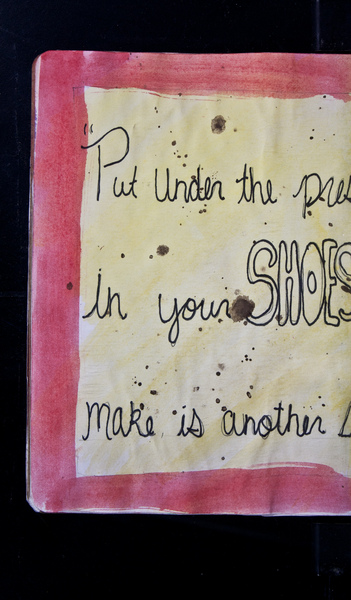 "Put Under the pres
in your SHOES
Make is another